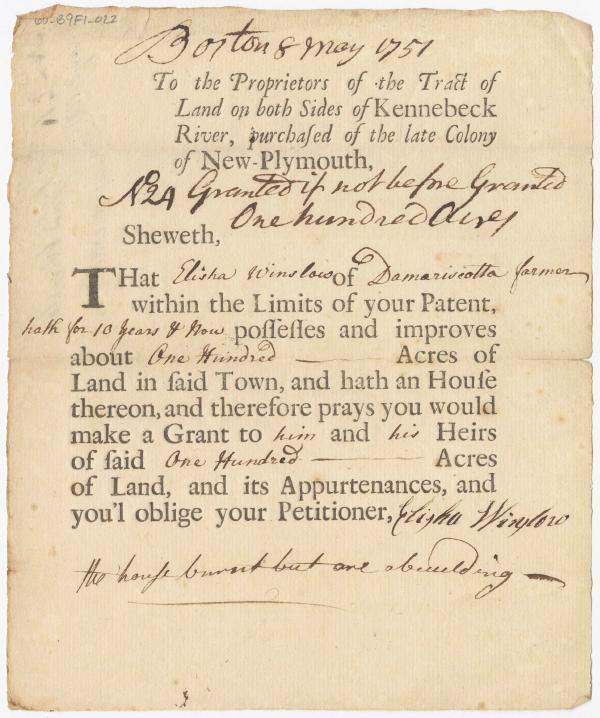 60-89F1-022
Boston 8 May 1751
To the Proprietors of the Tract of
Land on both Sides of Kennebeck
River, purchaſed of the late Colony
of New-Plymouth,
No 24 Granted if not before Granted
One hundred Acres
Sheweth,
THat Elisha Winslow of Damariscotta farmer
within the Limits of your Patent,
hath for 10 Years & Now poſſeſſes and improves
about One Hundred —— Acres of
Land in ſaid Town, and hath an Houſe
thereon, and therefore prays you would
make a Grant to him and his Heirs
of ſaid One Hundred —— Acres
of Land, and its Appurtenances, and
you'l oblige your Petitioner, Elisha Winslow
the house burnt but are abuilding —